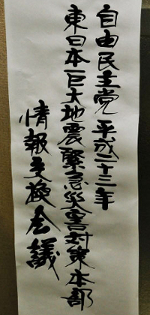 自由民主党平成二十三年
東日本巨大地震緊急災害対策本部
情報交換会議